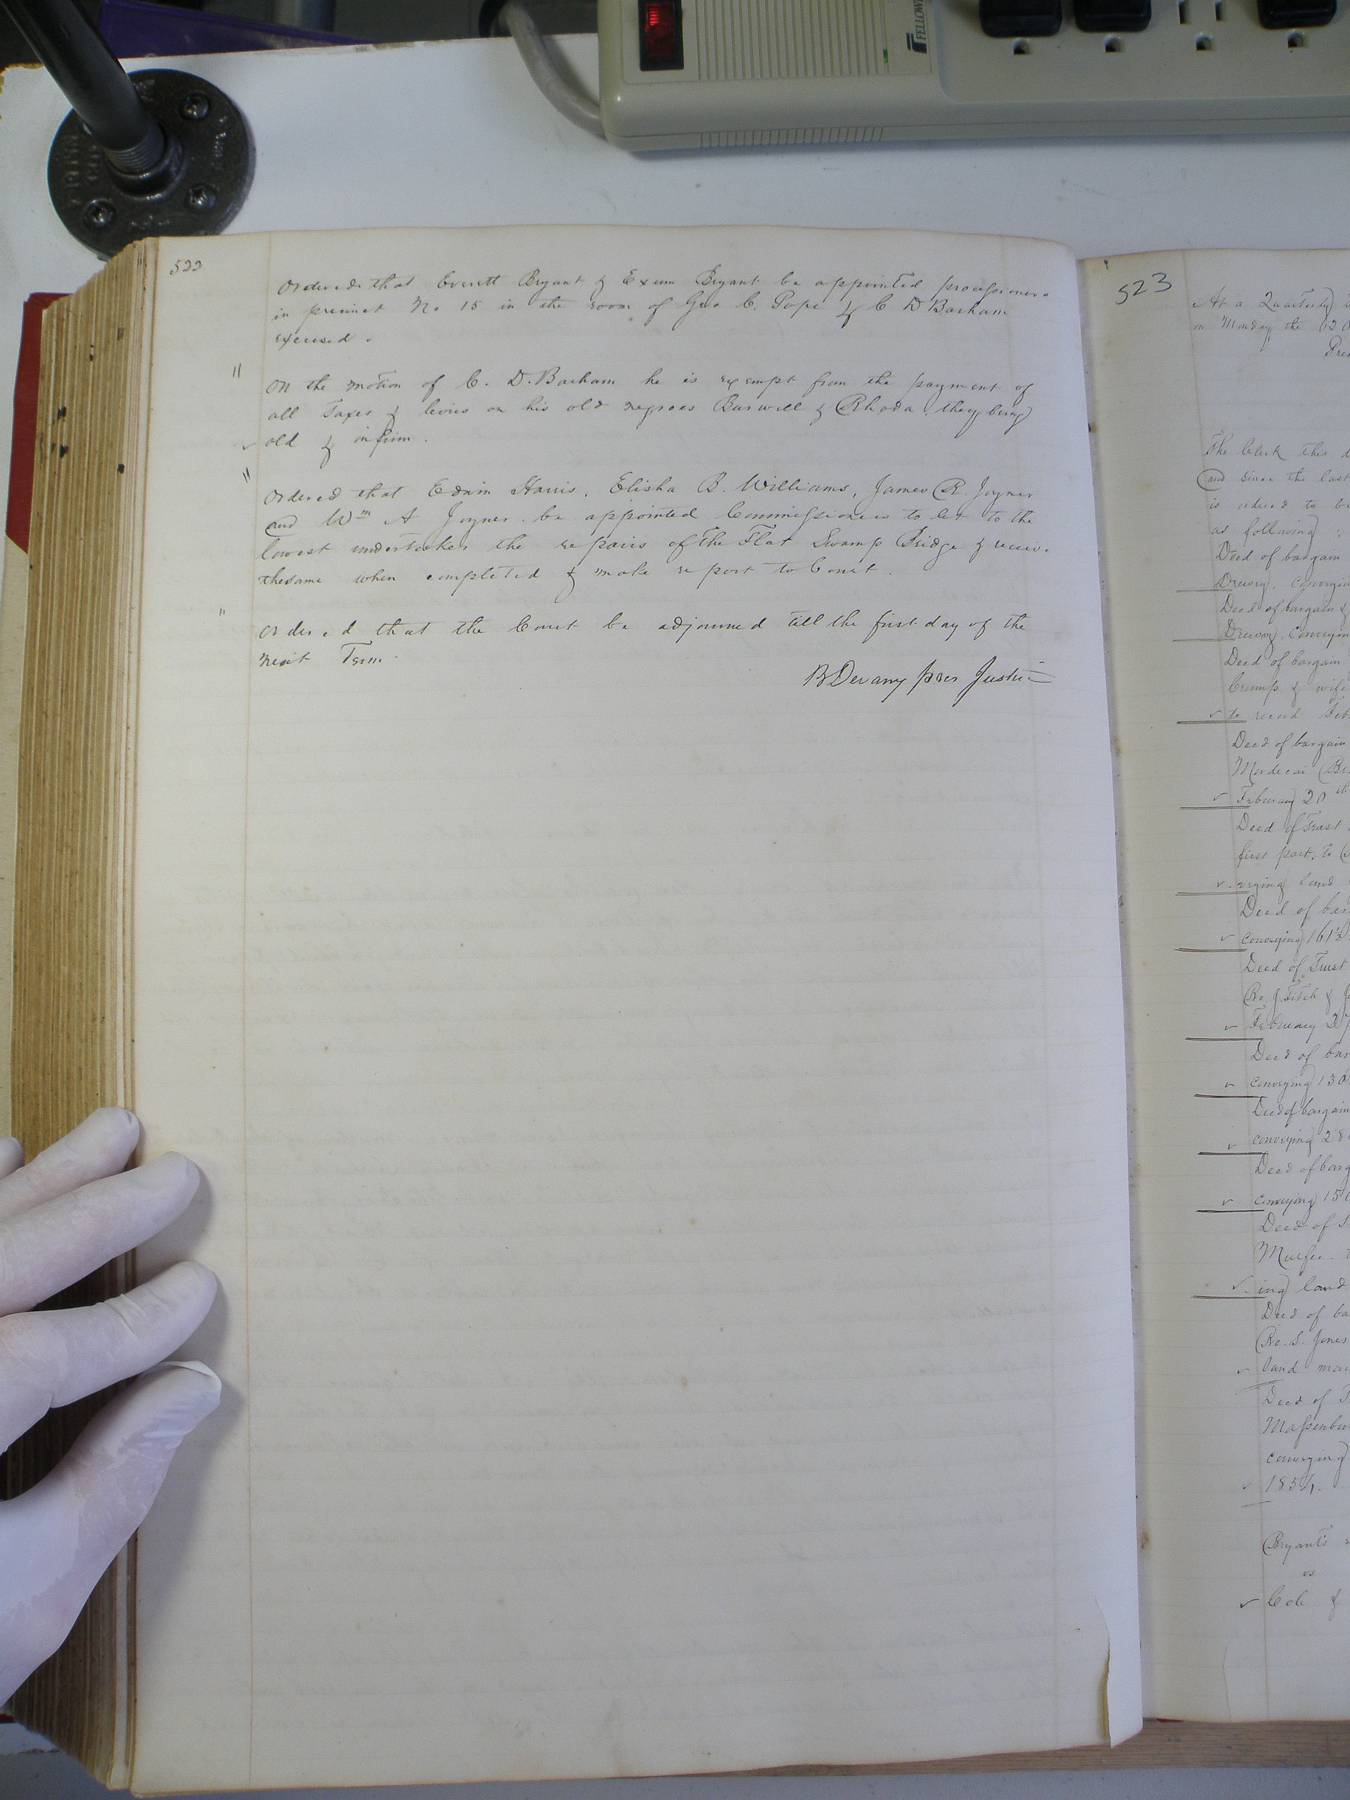 522
Ordered that Everitt Bryant & Exum Bryant be appointed processioners
in precinct No 15 in the room of Geo C. Pope & C D Barham
excused.
"
On the motion of C. D. Barham he is exempt from the payment of
all Taxes & levies on his old negroes Burwell & Rhoda, they being
old & infirm.
"
Ordered that Edwin Harris, Elisha B. Williams, James R. Joyner
and Wm A Joyner be appointed Commissioners to let to the
lowest undertaker the repairs of the Flat Swamp Bridge & receive
the same when completed & make report to Court.
"
Ordered that the Court be adjourned till the first day of the
next Term.
B Devany pres Justice
523
At a Quarterly
on Monday the
Pre
The Clerk this
and since the last
is ordered to be
as following:
Deed of bargain
Drewry, conveying
Deed of bargain &
Drewry, conveying
Deed of bargain
Crump & wife
to record Feb
Deed of bargain
Mordecai
February 20th
Deed of Trust
first part, to
veying land
Deed of bar
conveying 161½
Deed of Trust
Ro. J. Fitch &
February 27
Deed of bar
conveying 130
Deed of bargain
conveying 28
Deed of barg
conveying 150
Deed of
Murfee
ing land
Deed of ba
Ro. S. Jones
land
Deed of
Massenbur
conveying
1834.
Bryant's
vs
Cole &
FELLOWE